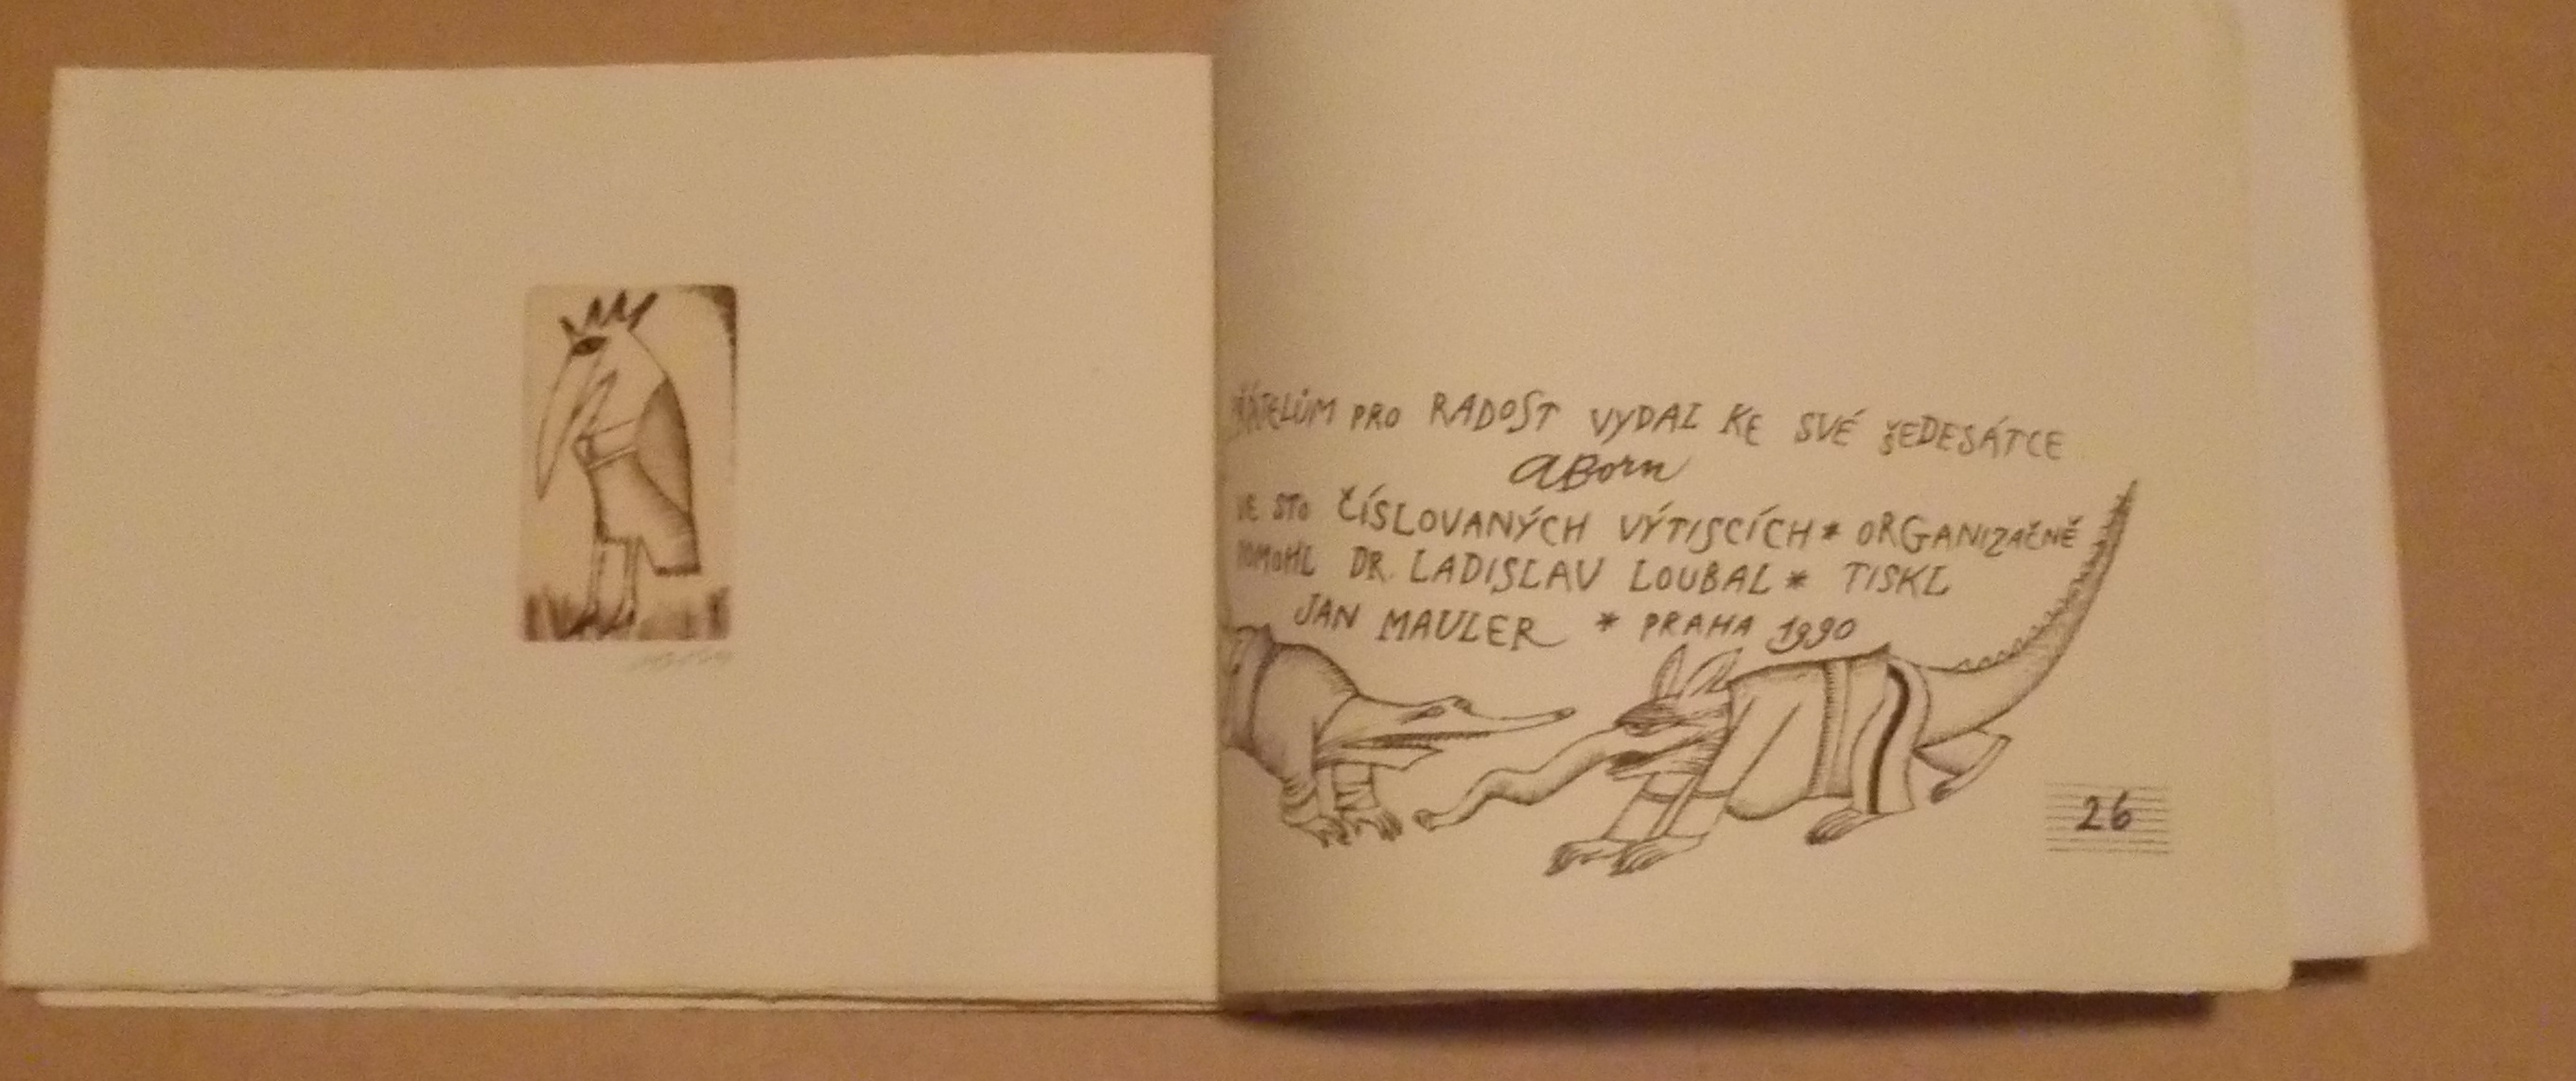 PŘÁTELŮM PRO RADOST VYDAL KE SVÉ ŠEDESÁTCE
ABorn
VE STO ČÍSLOVANÝCH VÝTISCÍCH * ORGANIZAČNĚ
POMOHL DR. LADISLAV LOUBAL * TISKL
JAN MAULER * PRAHA 1990
26